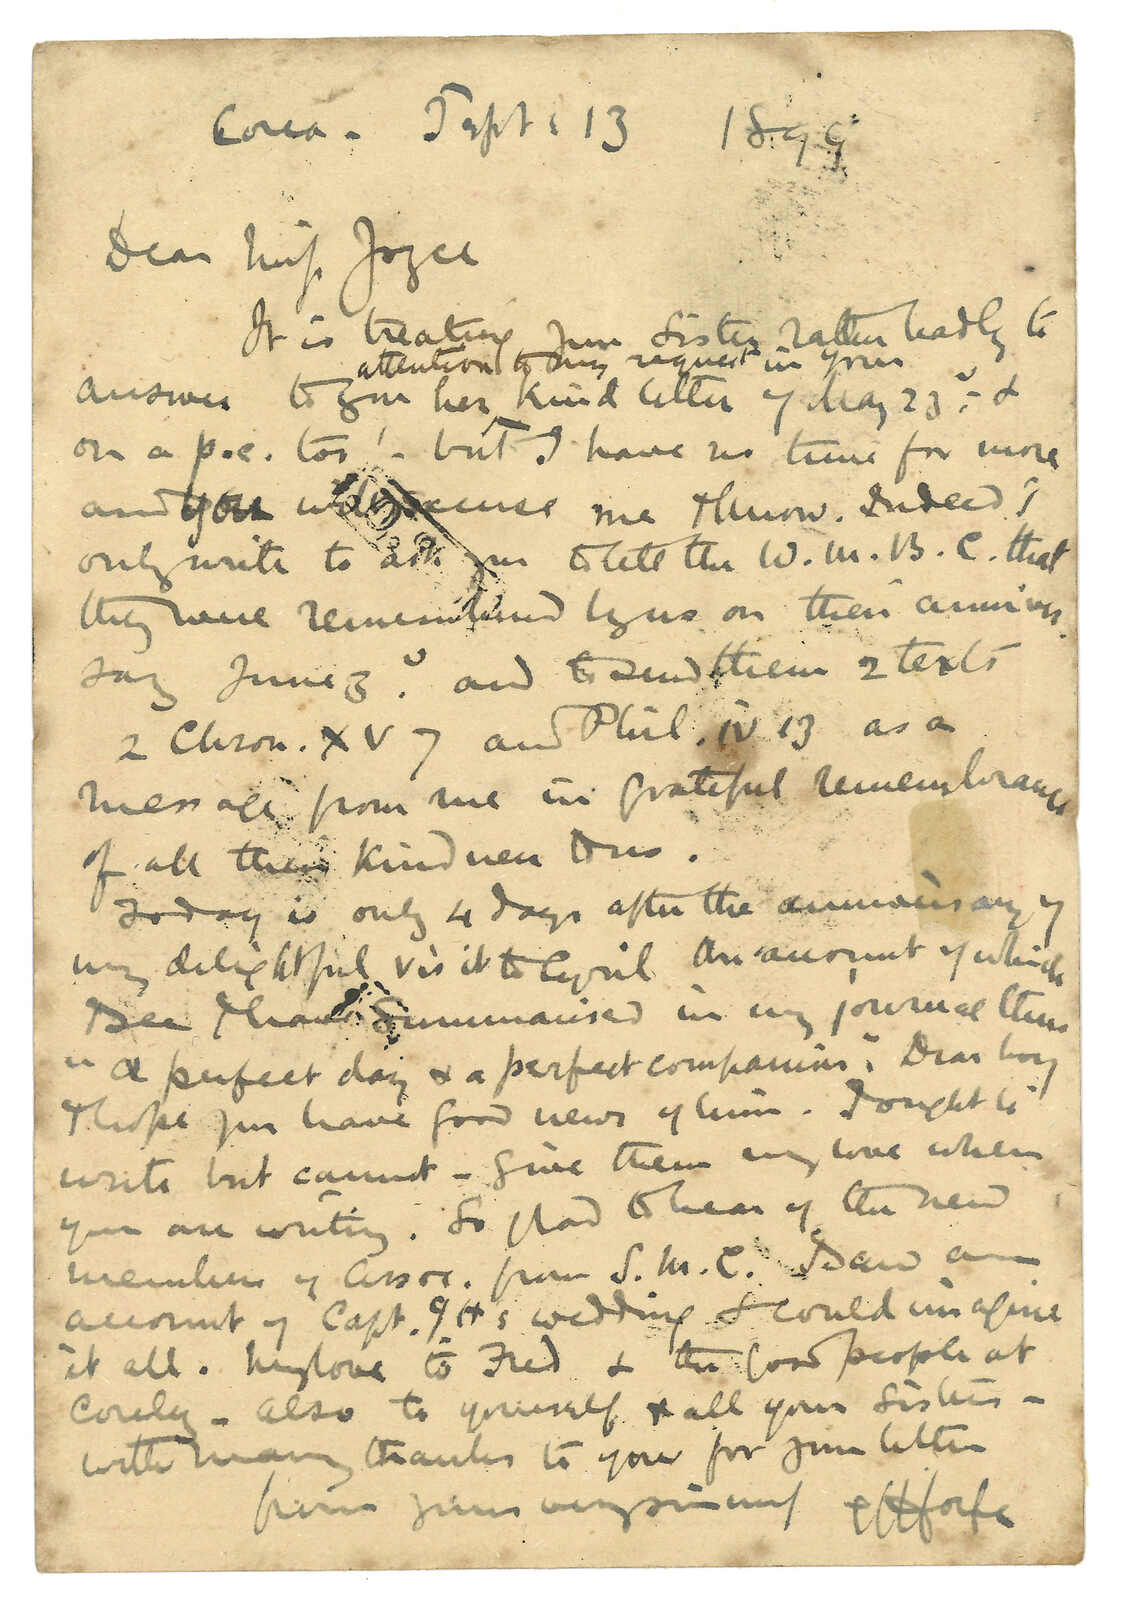 Corea - Sept: 13 1899
Dear Miss Joyce
It is treating your Sister rather badly to
attention to my request in your
answer to you her kind letter of May 23rd; &
on a p.c. too! - but I have no time for more
and you will excuse me I know. Indeed I
only write to ask you to tell the W.M.B.C. that
they were remembered by us on their anniver-
say June 3rd. and to send them 2 texts
2 Chron. XV 7 and Phil. IV 13 as a
message from me in grateful remembrance
of all their kindness to us.
Today is only 4 days after the anniversary of
my delightful visit to Cyril an account of which
I see I have summarised in my journal thus
"a perfect day & a perfect companion". Dear boy
I hope you have good news of him. I ought to
write but cannot - give them my love when
you are writing. So glad to hear of the new
members of Assoc. from S.M.C. I saw an
account of Capt. wedding & could imagine
it all. My love to Fred & the good people at
- also to yourself & all your Sisters -
with many thanks to you for your letter
from yours very sincerely